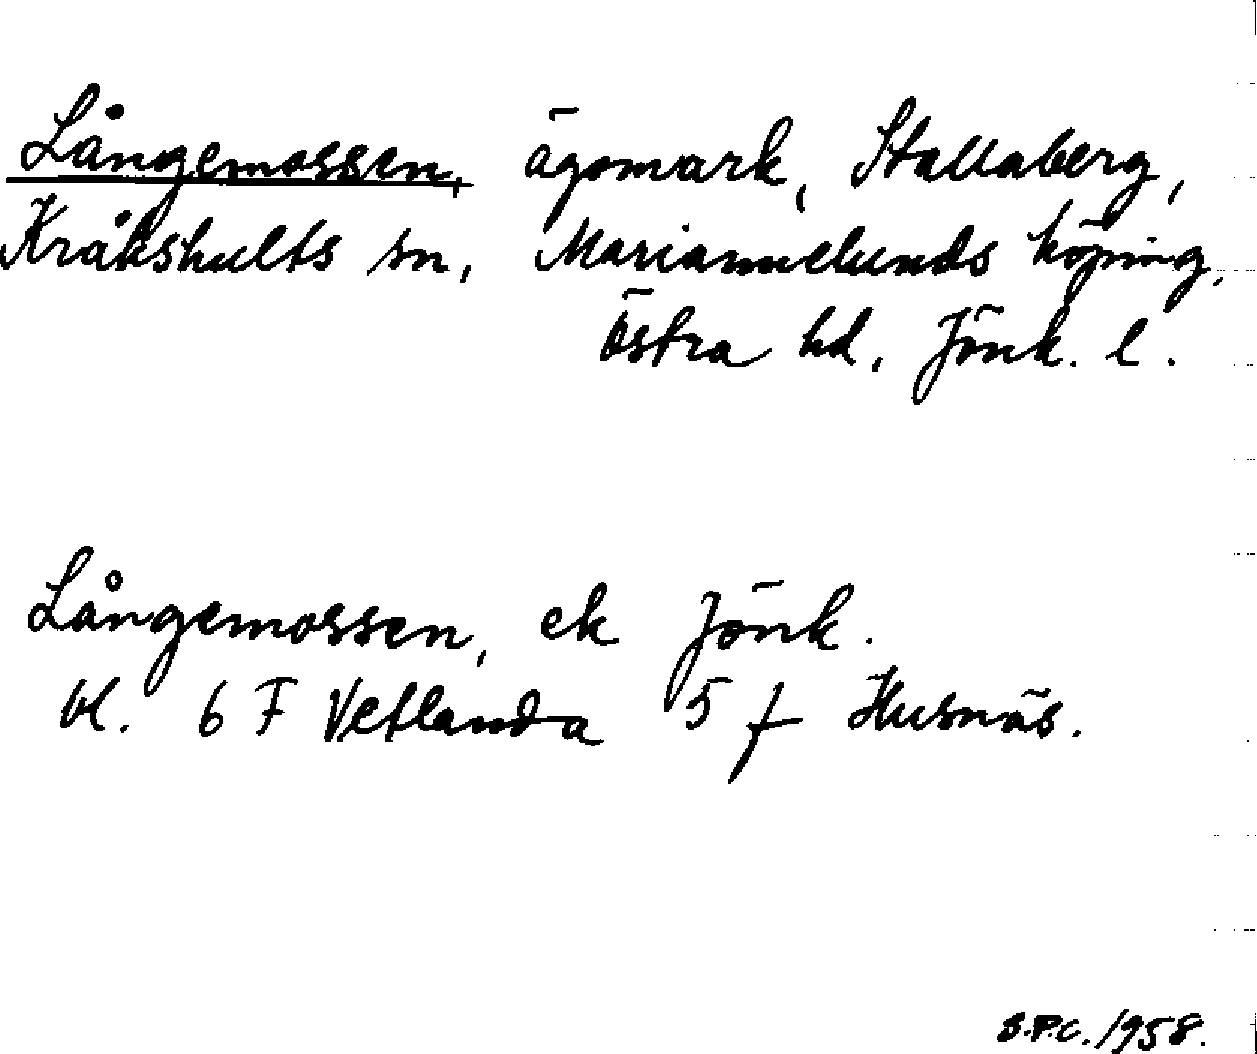 Långemossen, ägomark, Stallaberg,
Kråkshults sn, Mariannelunds köping,
Östra hd, Jönk. l.
Långemossen, ek Jönk.
bl. 6 F Vetlanda 5 f Husnäs.
S.P.C. 1958.